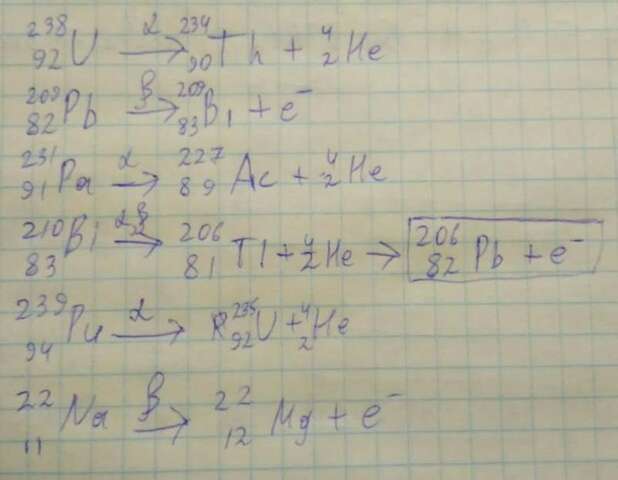 ²³⁸₉₂U —α→ ²³⁴₉₀Th + ⁴₂He
²⁰⁹₈₂Pb —β→ ²⁰⁹₈₃Bi + e⁻
²³¹₉₁Pa —α→ ²²⁷₈₉Ac + ⁴₂He
²¹⁰₈₃Bi —α→ ²⁰⁶₈₁Tl + ⁴₂He → ²⁰⁶₈₂Pb + e⁻
²³⁹₉₄Pu —α→ ²³⁵₉₂U + ⁴₂He
²²₁₁Na —β→ ²²₁₂Mg + e⁻